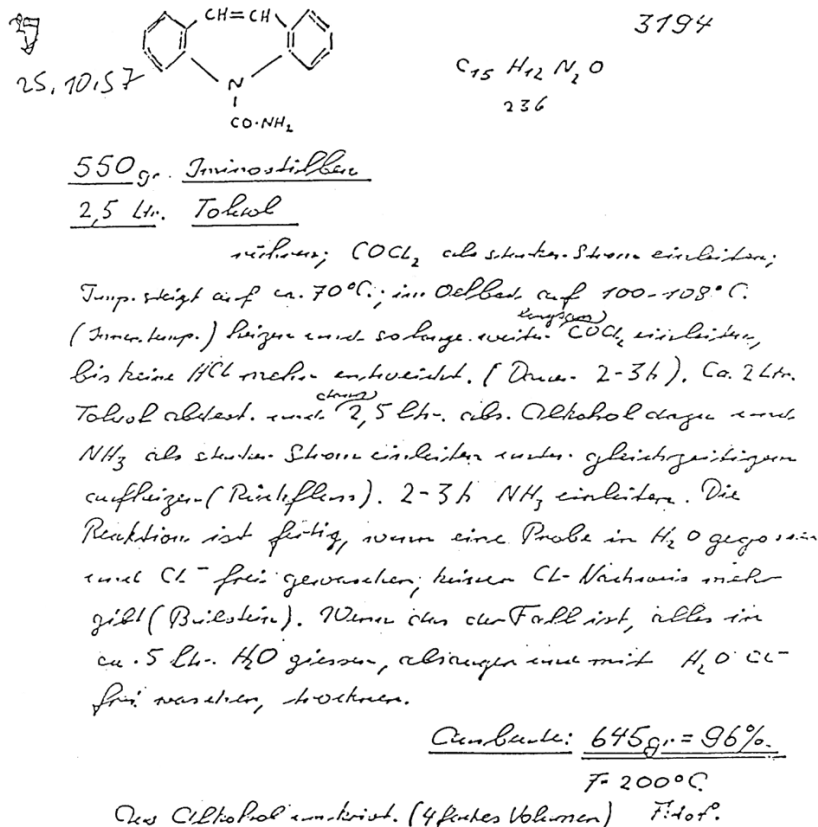 3194
25.10.57
CH=CH
N
CO·NH₂
C₁₅ H₁₂ N₂ O
236
550 gr. Iminostilben
2,5 Ltr. Toluol
rühren; COCl₂ als starken Strom einleiten;
Temp. steigt auf ca. 70°C.; im Oelbad auf 100-108°C.
(Innentemp.) heizen und solange weiter langsam COCl₂ einleiten,
bis keine HCl mehr entweicht. (Dauer 2-3h). Ca. 2 Ltr.
Toluol abdest. und dann 2,5 Ltr. abs. Alkohol dazu und
NH₃ als starken Strom einleiten unter gleichzeitigem
aufheizen (Rückfluss). 2-3h NH₃ einleiten. Die
Reaktion ist fertig, wenn eine Probe in H₂O gegossen
und Cl⁻ frei gewaschen, keinen Cl-Nachweis mehr
gibt (Beilstein). Wenn das der Fall ist, alles in
ca. 5 Ltr. H₂O giessen, absaugen und mit H₂O Cl⁻
frei waschen, trocknen.
Ausbeute: 645 gr. = 96%.
F. 200°C.
Aus Alkohol umkrist. (4faches Volumen)